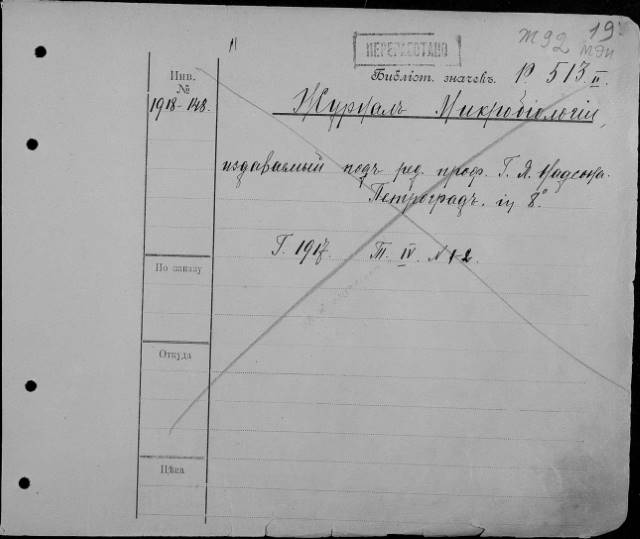 Ж92 19
МЭИ
ПЕРЕРАБОТАНО
Библіот. значекъ. Р 513 II.
Инв.
№
1918-148.
Журналъ Микробіологіи,
издаваемый подъ ред. проф. Г. А. Надсона.
Петроградъ. in 8°.
Г. 1917. Т. IV. N 1-2.
По заказу
Откуда
Цѣна